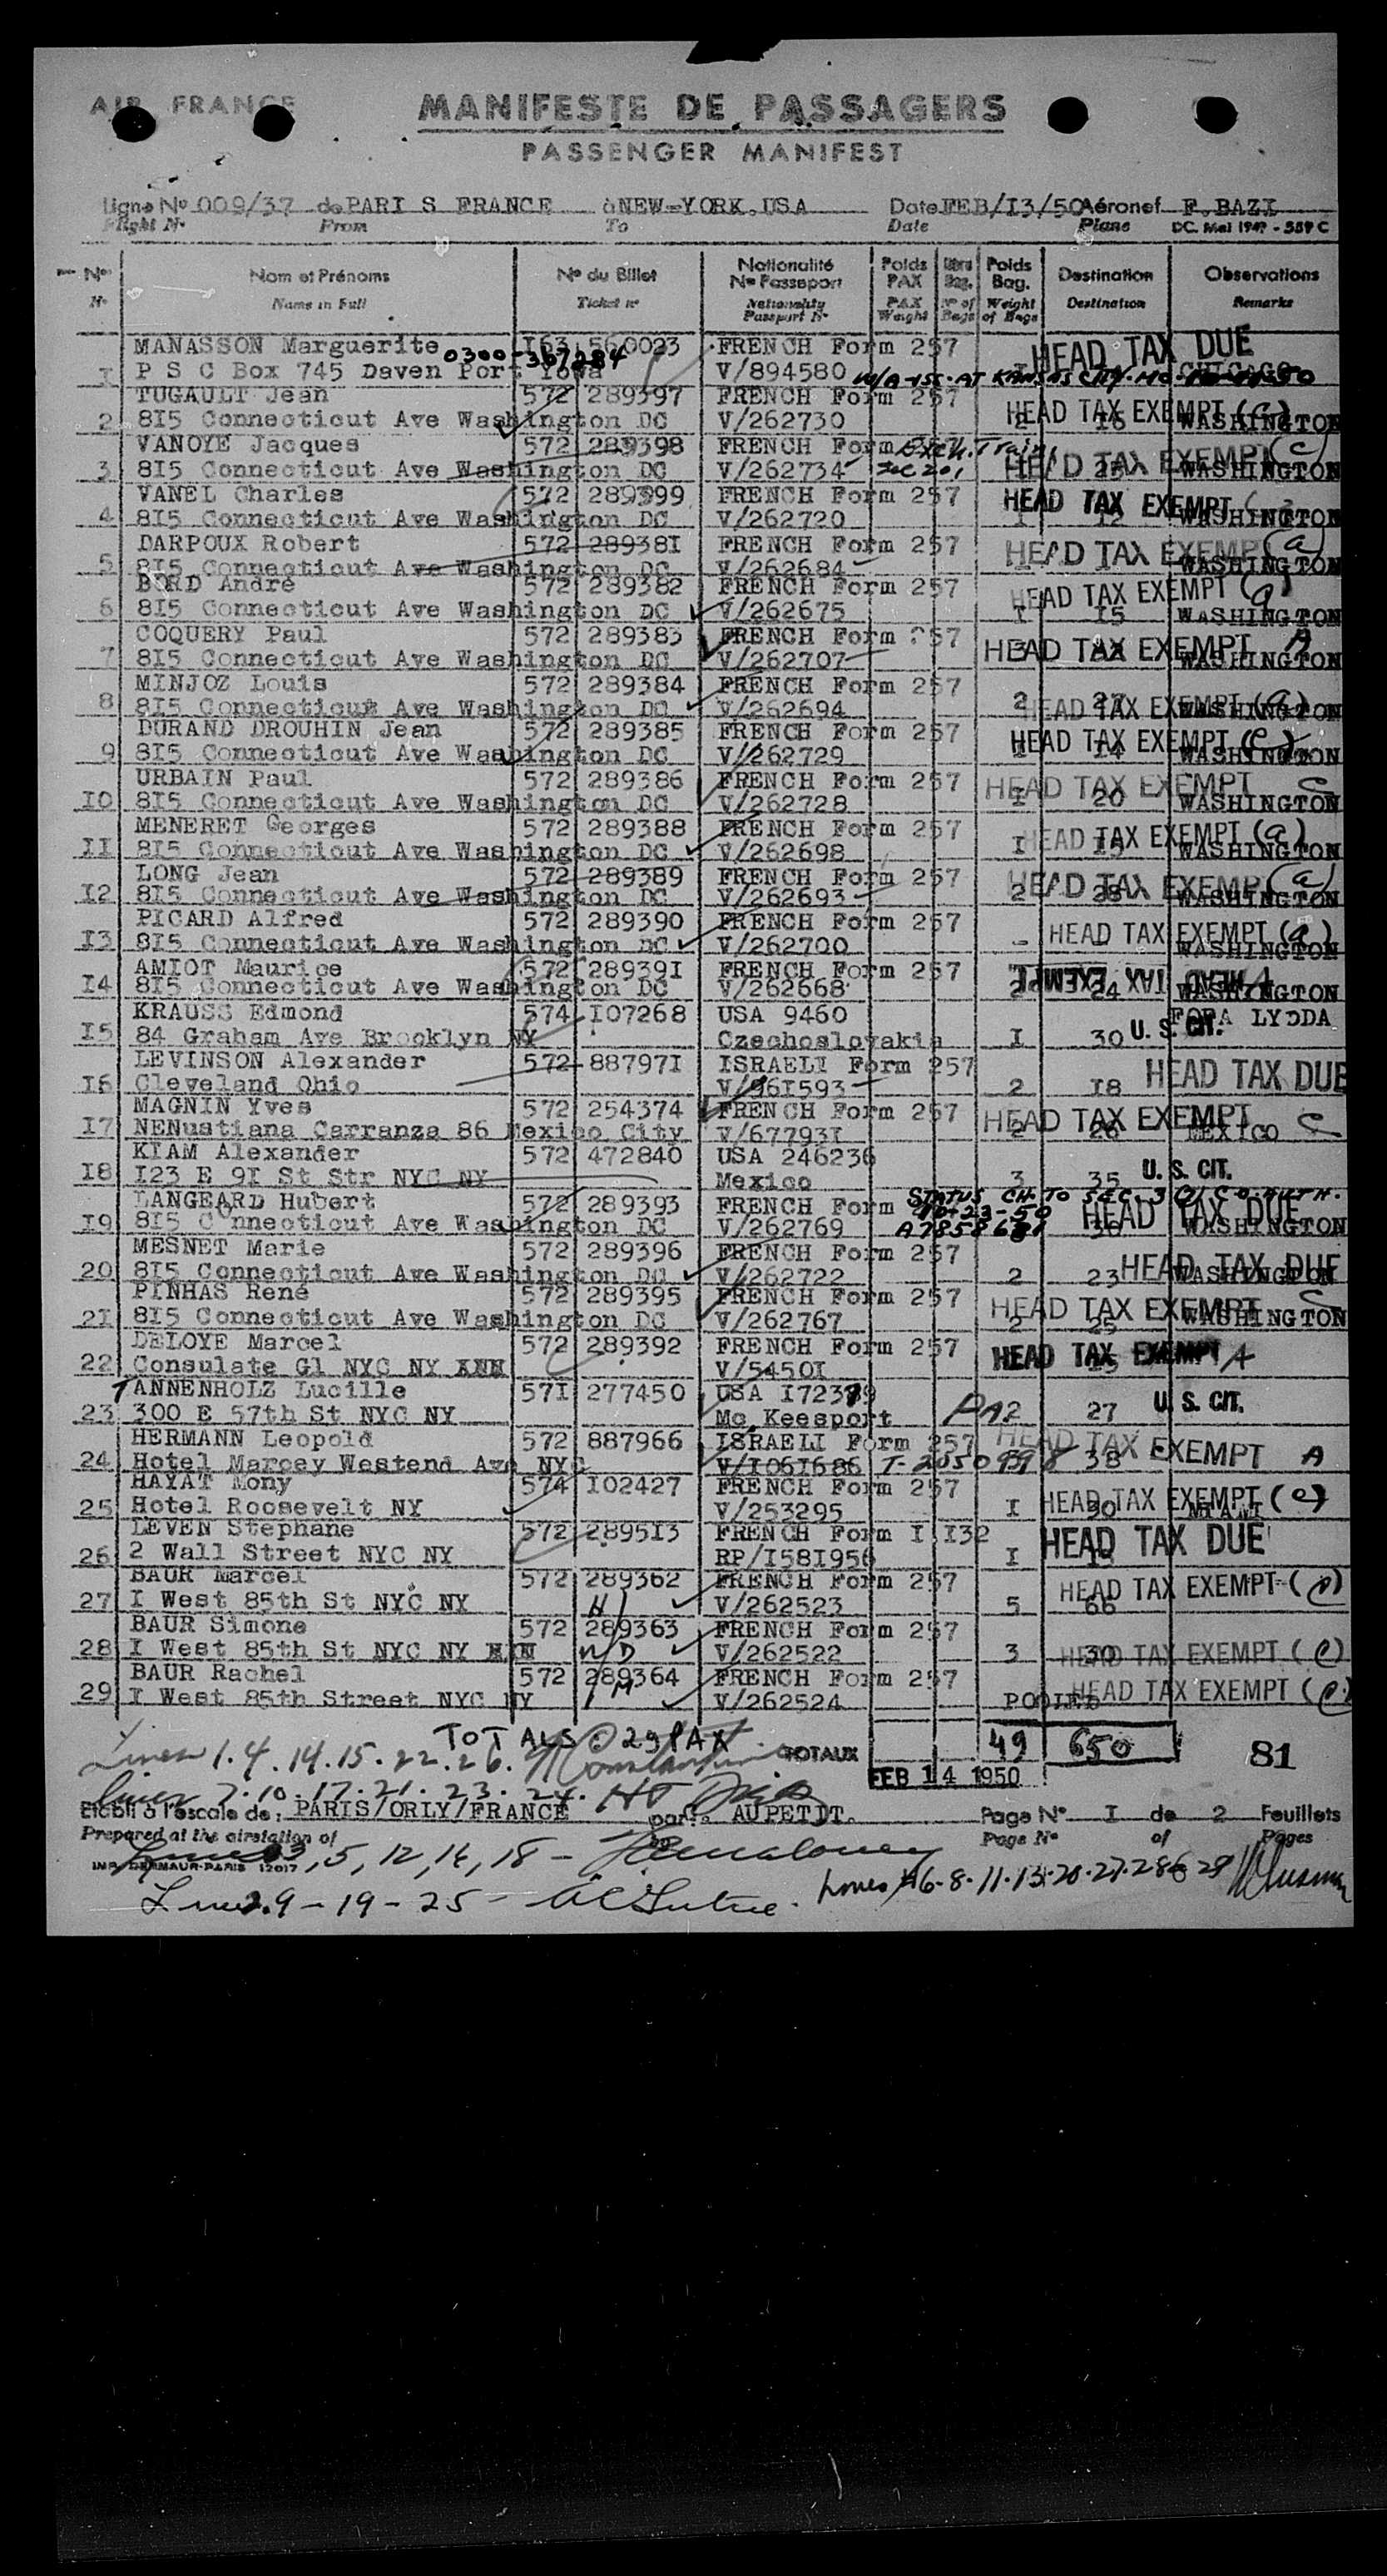 AIR FRANCE
MANIFESTE DE PASSAGERS
PASSENGER MANIFEST
Ligne No 009/37 de PARI S FRANCE à NEW-YORK.USA Date FEB/I3/50 Aéronef F.BAZI
Flight No From To Date Plane DC. Mai 1949 - 559 C
No Nom et Prénoms No du Billet Nationalité No Passeport Poids PAX Poids Bag. Destination Observations
No Name in Full Ticket no Nationality Passport No PAX Weight No of Bags Weight of Bags Destination Remarks
MANASSON Marguerite I63 560023 FRENCH Form 257 HEAD TAX DUE
0300-367284
I P S C Box 745 Daven Port Iowa V/894580 CHICAGO
TUGAULT Jean 572 289397 FRENCH Form 257 HEAD TAX EXEMPT (c)
2 8I5 Connecticut Ave Washington DC V/262730 WASHINGTON
VANOYE Jacques 572 289398 FRENCH Form
3 8I5 Connecticut Ave Washington DC V/262734 HEAD TAX EXEMPT (c) WASHINGTON
VANEL Charles 572 289399 FRENCH Form 257 HEAD TAX EXEMPT
4 8I5 Connecticut Ave Washington DC V/262720 I I2 WASHINGTON
DARPOUX Robert 572 28938I FRENCH Form 257 HEAD TAX EXEMPT (a)
5 8I5 Connecticut Ave Washington DC V/262684 WASHINGTON
BORD André 572 289382 FRENCH Form 257 HEAD TAX EXEMPT (a)
6 8I5 Connecticut Ave Washington DC V/262675 I I5 WASHINGTON
COQUERY Paul 572 289383 FRENCH Form 257 HEAD TAX EXEMPT A
7 8I5 Connecticut Ave Washington DC V/262707 WASHINGTON
MINJOZ Louis 572 289384 FRENCH Form 257
8 8I5 Connecticut Ave Washington DC V/262694 2 27 HEAD TAX EXEMPT (a) WASHINGTON
DURAND DROUHIN Jean 572 289385 FRENCH Form 257 HEAD TAX EXEMPT (c)
9 8I5 Connecticut Ave Washington DC V/262729 I I4 WASHINGTON
URBAIN Paul 572 289386 FRENCH Form 257 HEAD TAX EXEMPT C
I0 8I5 Connecticut Ave Washington DC V/262728 I 20 WASHINGTON
MENERET Georges 572 289388 FRENCH Form 257 HEAD TAX EXEMPT (a)
II 8I5 Connecticut Ave Washington DC V/262698 I I5 WASHINGTON
LONG Jean 572 289389 FRENCH Form 257 HEAD TAX EXEMPT (a)
I2 8I5 Connecticut Ave Washington DC V/262693 2 28 WASHINGTON
PICARD Alfred 572 289390 FRENCH Form 257 HEAD TAX EXEMPT (a)
I3 8I5 Connecticut Ave Washington DC V/262700 - - WASHINGTON
AMIOT Maurice 572 28939I FRENCH Form 257 HEAD TAX EXEMPT
I4 8I5 Connecticut Ave Washington DC V/262668 2 24 WASHINGTON
KRAUSS Edmond 574 I07268 USA 9460 U. S. CIT. LYDDA
I5 84 Graham Ave Brooklyn NY Czechoslovakia I 30
LEVINSON Alexander 572 88797I ISRAELI Form 257
I6 Cleveland Ohio V/96I593 2 I8 HEAD TAX DUE
MAGNIN Yves 572 254374 FRENCH Form 257 HEAD TAX EXEMPT C
I7 NENustiana Carranza 86 Mexico City V/67793I 2 26 MEXICO
KIAM Alexander 572 472840 USA 246236
I8 I23 E 9I St Str NYC NY Mexico 3 35 U. S. CIT.
LANGEARD Hubert 572 289393 FRENCH Form STATUS CH. TO SEC. 3
10-23-50
I9 8I5 Connecticut Ave Washington DC V/262769 HEAD TAX DUE WASHINGTON
MESNET Marie 572 289396 FRENCH Form 257
20 8I5 Connecticut Ave Washington DC V/262722 2 23 HEAD TAX DUE WASHINGTON
PINHAS René 572 289395 FRENCH Form 257 HEAD TAX EXEMPT C
2I 8I5 Connecticut Ave Washington DC V/262767 2 25 WASHINGTON
DELOYE Marcel 572 289392 FRENCH Form 257 HEAD TAX EXEMPT A
22 Consulate Gl NYC NY V/5450I
TANNENHOLZ Lucille 57I 277450 USA
23 300 E 57th St NYC NY Mc Keesport 2 27 U. S. CIT.
HERMANN Leopold 572 887966 ISRAELI Form 257 HEAD TAX EXEMPT A
24 Hotel Marcey Westend Ave NYC V/I06I686 38
HAYAT Mony 574 I02427 FRENCH Form 257
25 Hotel Roosevelt NY V/253295 I 30 HEAD TAX EXEMPT (c) MIAMI
LEVEN Stephane 572 2895I3 FRENCH Form I.I32 HEAD TAX DUE
26 2 Wall Street NYC NY RP/I58I956 I
BAUR Marcel 572 289362 FRENCH Form 257 HEAD TAX EXEMPT
27 I West 85th St NYC NY H V/262523 5 66
BAUR Simone 572 289363 FRENCH Form 257
28 I West 85th St NYC NY W/D V/262522 3 30 HEAD TAX EXEMPT (c)
BAUR Rachel 572 289364 FRENCH Form 257
29 I West 85th Street NYC NY V/262524 POOLED HEAD TAX EXEMPT
TOTALS : 29 PAX TOTAUX 49 650 81
Lines 1.4.14.15.22.26.
FEB 14 1950
Lines 7.10.17.21.23.24.
Etabli à l'escale de: PARIS/ORLY/FRANCE par: AUPETIT. Page No I de 2 Feuillets
Prepared at the airstation of Page No of Pages
Lines 3, 5, 12, 16, 18 -
IMP. DERMAUR-PARIS 12017
Lines 2.9-19-25-
Lines 6-8-11-13-20-27-28 & 29